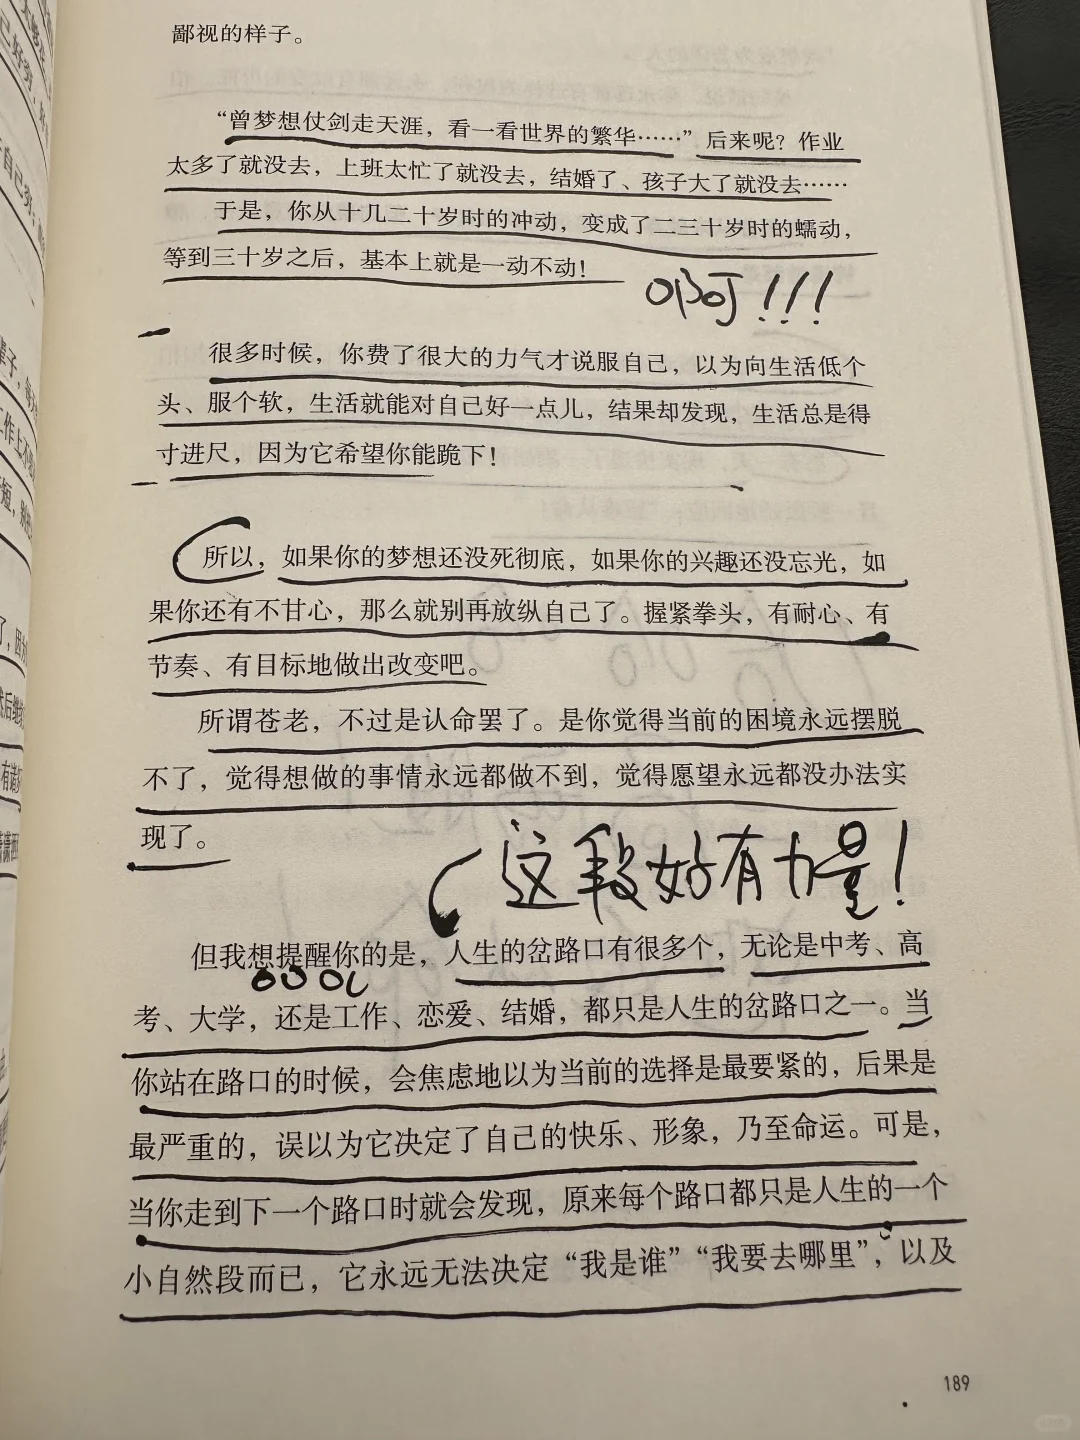 鄙视的样子。
“曾梦想仗剑走天涯，看一看世界的繁华……”后来呢？作业
太多了就没去，上班太忙了就没去，结婚了、孩子大了就没去……
于是，你从十几二十岁时的冲动，变成了二三十岁时的蠕动，
等到三十岁之后，基本上就是一动不动！
啊！！！
很多时候，你费了很大的力气才说服自己，以为向生活低个
头、服个软，生活就能对自己好一点儿，结果却发现，生活总是得
寸进尺，因为它希望你能跪下！
所以，如果你的梦想还没死彻底，如果你的兴趣还没忘光，如
果你还有不甘心，那么就别再放纵自己了。握紧拳头，有耐心、有
节奏、有目标地做出改变吧。
所谓苍老，不过是认命罢了。是你觉得当前的困境永远摆脱
不了，觉得想做的事情永远都做不到，觉得愿望永远都没办法实
现了。
这段好有力量！
但我想提醒你的是，人生的岔路口有很多个，无论是中考、高
考、大学，还是工作、恋爱、结婚，都只是人生的岔路口之一。当
你站在路口的时候，会焦虑地以为当前的选择是最要紧的，后果是
最严重的，误以为它决定了自己的快乐、形象，乃至命运。可是，
当你走到下一个路口时就会发现，原来每个路口都只是人生的一个
小自然段而已，它永远无法决定“我是谁”“我要去哪里”，以及
189